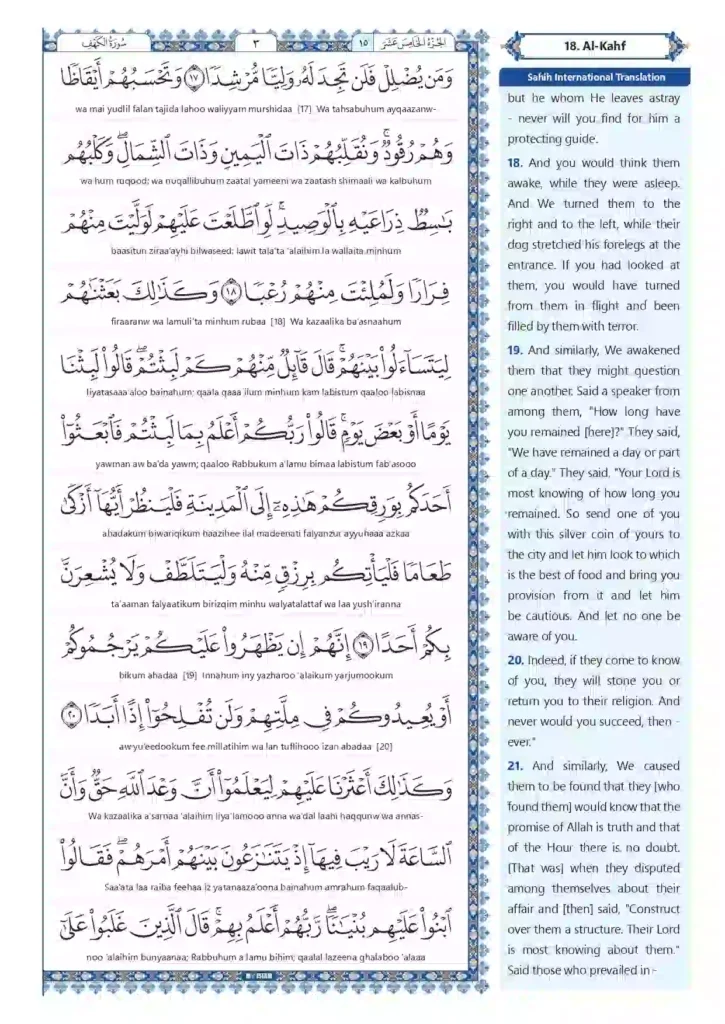 سُورَةُ الكَهْفِ
٣
١٥
الجُزْءُ الخَامِسَ عَشَرَ
وَمَن يُضْلِلْ فَلَن تَجِدَ لَهُۥ وَلِيًّا مُّرْشِدًا ۝١٧ وَتَحْسَبُهُمْ أَيْقَاظًا
wa mai yudlil falan tajida lahoo waliyyam murshidaa [17] Wa tahsabuhum ayqaazanw-
وَهُمْ رُقُودٌ ۚ وَنُقَلِّبُهُمْ ذَاتَ ٱلْيَمِينِ وَذَاتَ ٱلشِّمَالِ ۖ وَكَلْبُهُم
wa hum ruqood; wa nuqallibuhum zaatal yameeni wa zaatash shimaali wa kalbuhum
بَٰسِطٌ ذِرَاعَيْهِ بِٱلْوَصِيدِ ۚ لَوِ ٱطَّلَعْتَ عَلَيْهِمْ لَوَلَّيْتَ مِنْهُمْ
baasitun ziraa'ayhi bilwaseed; lawit tala'ta 'alaihim la wallaita minhum
فِرَارًا وَلَمُلِئْتَ مِنْهُمْ رُعْبًا ۝١٨ وَكَذَٰلِكَ بَعَثْنَٰهُمْ
firaaranw wa lamuli'ta minhum rubaa [18] Wa kazaalika ba'asnaahum
لِيَتَسَآءَلُوا۟ بَيْنَهُمْ ۚ قَالَ قَآئِلٌ مِّنْهُمْ كَمْ لَبِثْتُمْ ۖ قَالُوا۟ لَبِثْنَا
liyatasaaa'aloo bainahum; qaala qaaa'ilum minhum kam labistum qaaloo labisnaa
يَوْمًا أَوْ بَعْضَ يَوْمٍ ۚ قَالُوا۟ رَبُّكُمْ أَعْلَمُ بِمَا لَبِثْتُمْ فَٱبْعَثُوٓا۟
yawman aw ba'da yawm; qaaloo Rabbukum a'lamu bimaa labistum fab'asooo
أَحَدَكُم بِوَرِقِكُمْ هَٰذِهِۦٓ إِلَى ٱلْمَدِينَةِ فَلْيَنظُرْ أَيُّهَآ أَزْكَىٰ
ahadakum biwariqikum haazihee ilal madeenati falyanzur ayyuhaaa azkaa
طَعَامًا فَلْيَأْتِكُم بِرِزْقٍ مِّنْهُ وَلْيَتَلَطَّفْ وَلَا يُشْعِرَنَّ
ta'aaman falyaatikum birizqim minhu walyatalattaf wa laa yush'iranna
بِكُمْ أَحَدًا ۝١٩ إِنَّهُمْ إِن يَظْهَرُوا۟ عَلَيْكُمْ يَرْجُمُوكُمْ
bikum ahadaa [19] Innahum iny yazharoo 'alaikum yarjumookum
أَوْ يُعِيدُوكُمْ فِى مِلَّتِهِمْ وَلَن تُفْلِحُوٓا۟ إِذًا أَبَدًا ۝٢٠
aw yu'eedookum fee millatihim wa lan tuflihooo izan abadaa [20]
وَكَذَٰلِكَ أَعْثَرْنَا عَلَيْهِمْ لِيَعْلَمُوٓا۟ أَنَّ وَعْدَ ٱللَّهِ حَقٌّ وَأَنَّ
Wa kazaalika a'sarnaa 'alaihim liya'lamooo anna wa'dal laahi haqqunw wa annas-
ٱلسَّاعَةَ لَا رَيْبَ فِيهَآ إِذْ يَتَنَٰزَعُونَ بَيْنَهُمْ أَمْرَهُمْ ۖ فَقَالُوا۟
Saa'ata laa raiba feehaa iz yatanaaza'oona bainahum amrahum faqaalub-
ٱبْنُوا۟ عَلَيْهِم بُنْيَٰنًا ۖ رَّبُّهُمْ أَعْلَمُ بِهِمْ ۚ قَالَ ٱلَّذِينَ غَلَبُوا۟ عَلَىٰٓ
noo 'alaihim bunyaanaa; Rabbuhum a'lamu bihim; qaalal lazeena ghalaboo 'alaaa
18. Al-Kahf
Sahih International Translation
but he whom He leaves astray
- never will you find for him a
protecting guide.
18. And you would think them
awake, while they were asleep.
And We turned them to the
right and to the left, while their
dog stretched his forelegs at the
entrance. If you had looked at
them, you would have turned
from them in flight and been
filled by them with terror.
19. And similarly, We awakened
them that they might question
one another. Said a speaker from
among them, "How long have
you remained [here]?" They said,
"We have remained a day or part
of a day." They said, "Your Lord is
most knowing of how long you
remained. So send one of you
with this silver coin of yours to
the city and let him look to which
is the best of food and bring you
provision from it and let him
be cautious. And let no one be
aware of you.
20. Indeed, if they come to know
of you, they will stone you or
return you to their religion. And
never would you succeed, then -
ever."
21. And similarly, We caused
them to be found that they [who
found them] would know that the
promise of Allah is truth and that
of the Hour there is no doubt.
[That was] when they disputed
among themselves about their
affair and [then] said, "Construct
over them a structure. Their Lord
is most knowing about them."
Said those who prevailed in -